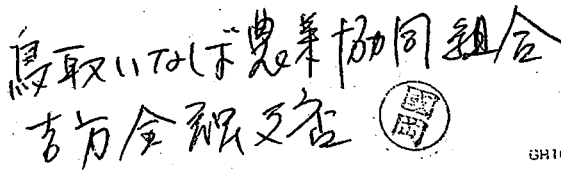 鳥取いなば農業協同組合
吉方金融支店
國岡
GH10